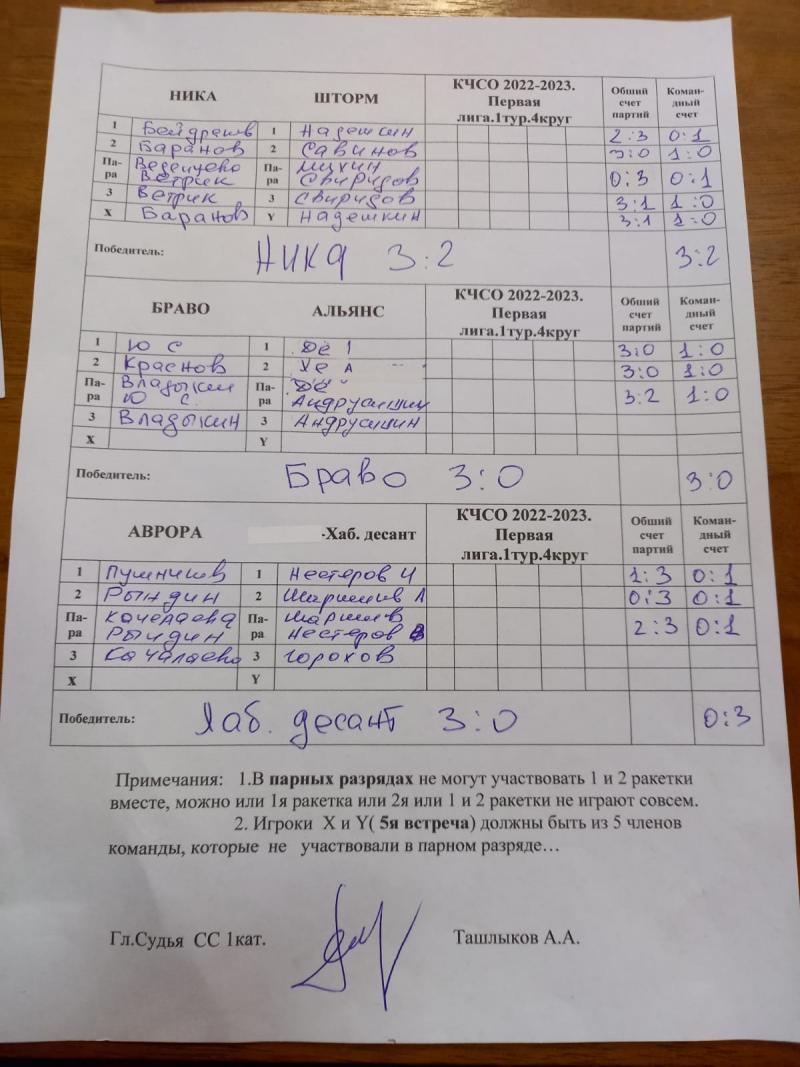 НИКА ШТОРМ КЧСО 2022-2023. Первая лига.1тур.4круг Общий счет партий Коман-дный счет
1 1 Надешкин 2:3 0:1
2 Баранов 2 Савинов 3:0 1:0
Па-ра Ветрик Па-ра Свиридов 0:3 0:1
3 Ветрик 3 Свиридов 3:1 1:0
X Баранов Y Надешкин 3:1 1:0
Победитель: НИКА 3:2 3:2
БРАВО АЛЬЯНС КЧСО 2022-2023. Первая лига.1тур.4круг Общий счет партий Коман-дный счет
1 Ю С 1 3:0 1:0
2 Краснов 2 3:0 1:0
Па-ра Владыкин Ю С. Па-ра 3:2 1:0
3 Владыкин 3 Андрушин
X Y
Победитель: Браво 3:0 3:0
АВРОРА -Хаб. десант КЧСО 2022-2023. Первая лига.1тур.4круг Общий счет партий Коман-дный счет
1 1 Нестеров И 1:3 0:1
2 Рындин 2 0:3 0:1
Па-ра Рындин Па-ра Нестеров 2:3 0:1
3 3 Горохов
X Y
Победитель: Хаб. десант 3:0 0:3
Примечания: 1.В парных разрядах не могут участвовать 1 и 2 ракетки
вместе, можно или 1я ракетка или 2я или 1 и 2 ракетки не играют совсем.
2. Игроки X и Y( 5я встреча) должны быть из 5 членов
команды, которые не участвовали в парном разряде…
Гл.Судья СС 1кат. Ташлыков А.А.